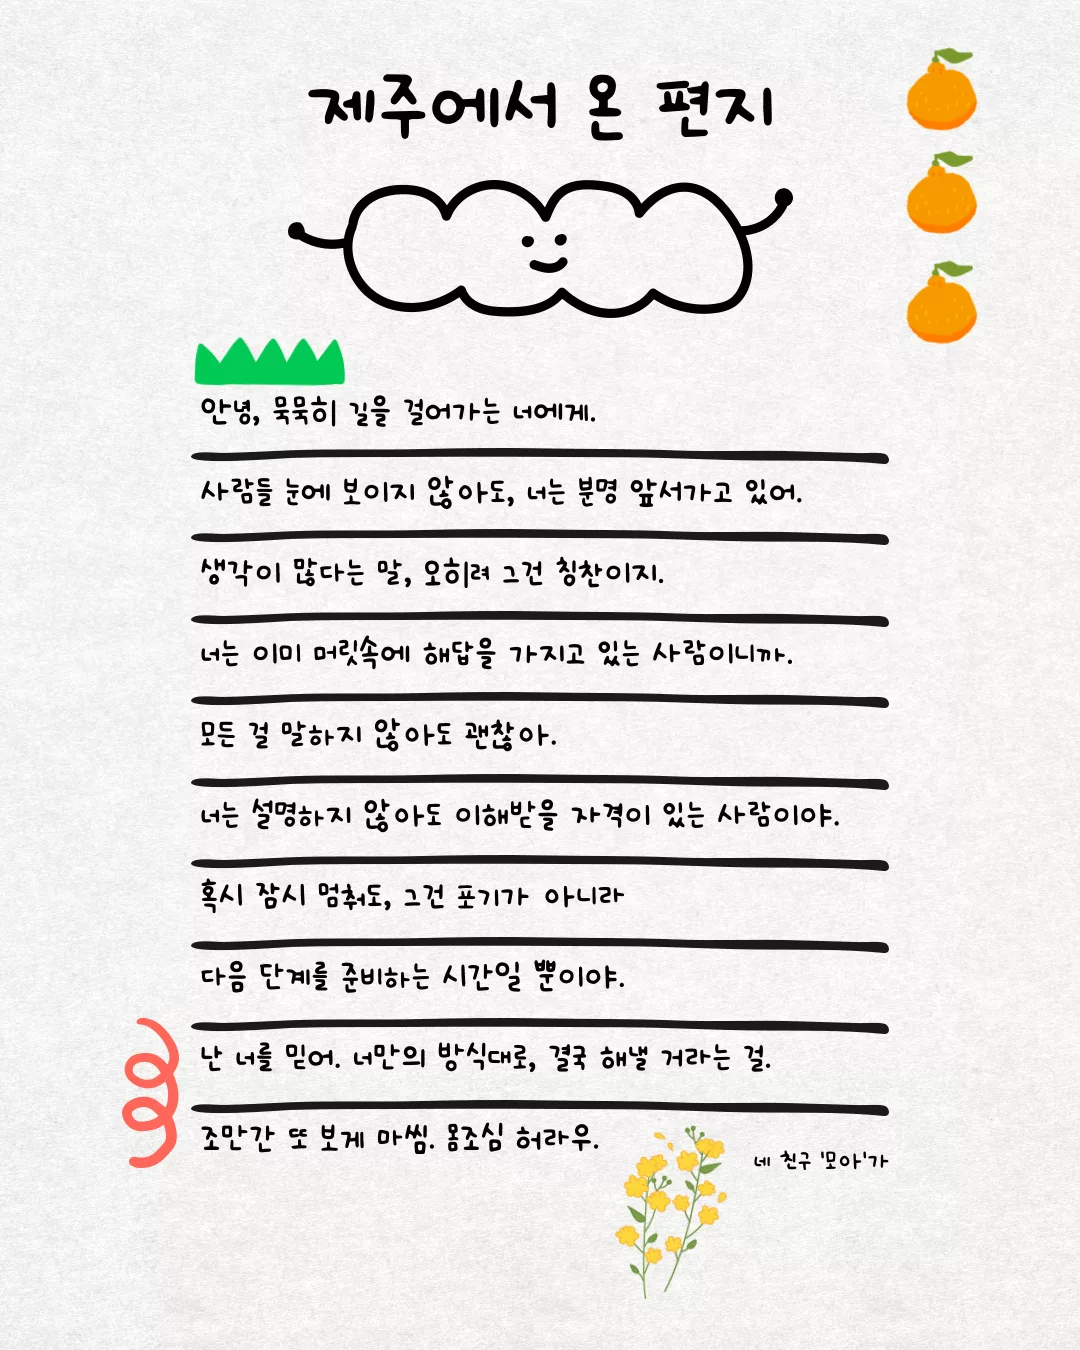 제주에서 온 편지
안녕, 묵묵히 길을 걸어가는 너에게.
사람들 눈에 보이지 않아도, 너는 분명 앞서가고 있어.
생각이 많다는 말, 오히려 그건 칭찬이지.
너는 이미 머릿속에 해답을 가지고 있는 사람이니까.
모든 걸 말하지 않아도 괜찮아.
너는 설명하지 않아도 이해받을 자격이 있는 사람이야.
혹시 잠시 멈춰도, 그건 포기가 아니라
다음 단계를 준비하는 시간일 뿐이야.
난 너를 믿어. 너만의 방식대로, 결국 해낼 거라는 걸.
조만간 또 보게 마씸. 몸조심 허라우.
네 친구 '모아'가